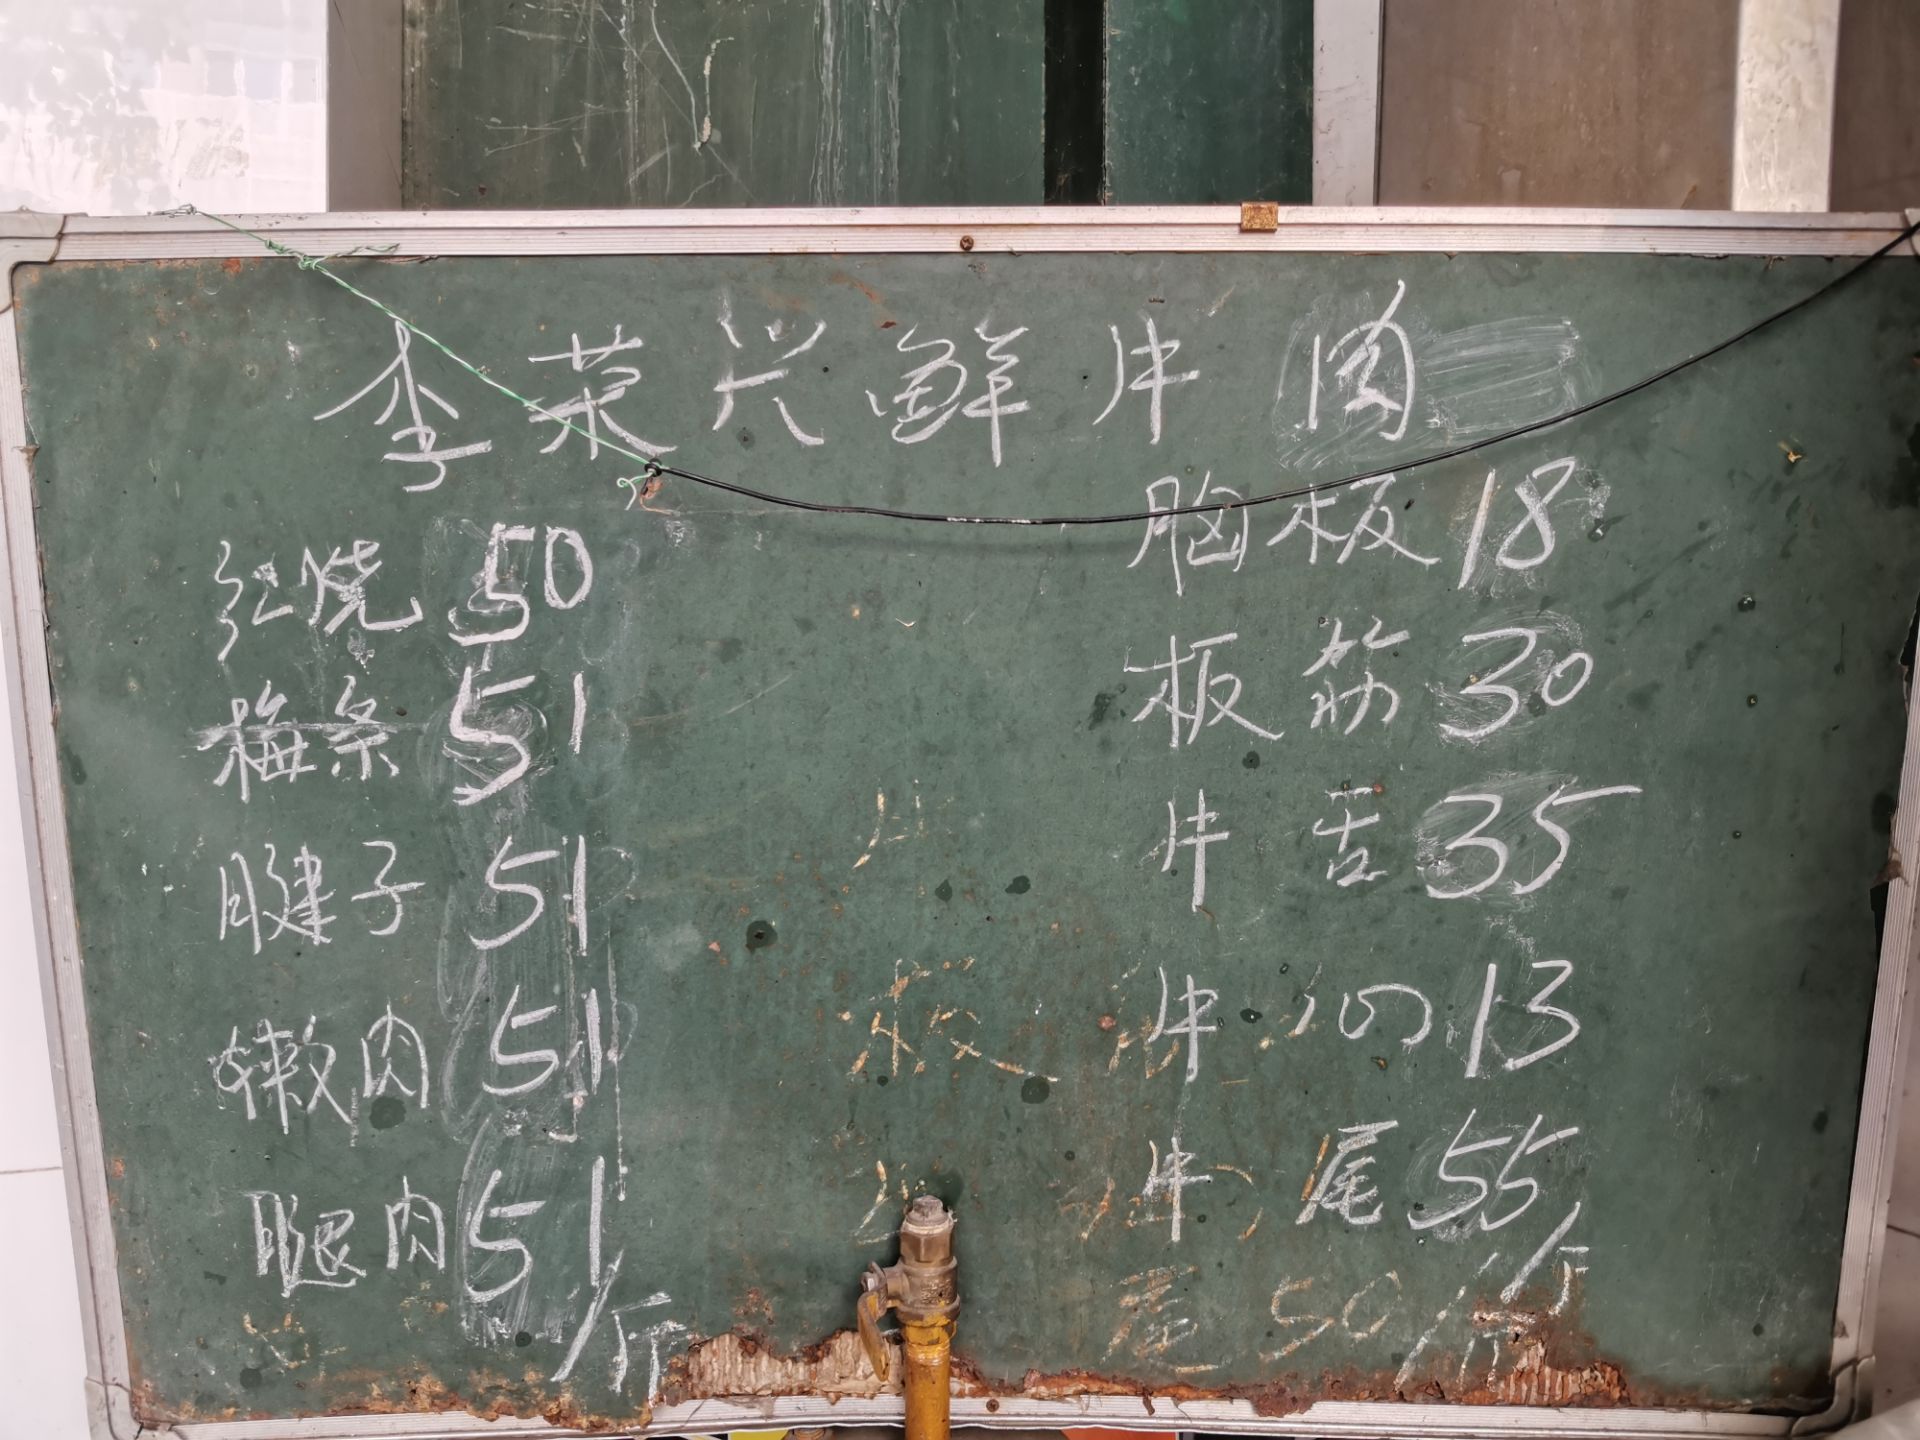 李荣兴鲜牛肉
红烧 50
梅条 51
腱子 51
嫩肉 51
腿肉 51/斤
胸板 18
板筋 30
牛舌 35
牛心 13
牛尾 55/斤
尾 50/斤